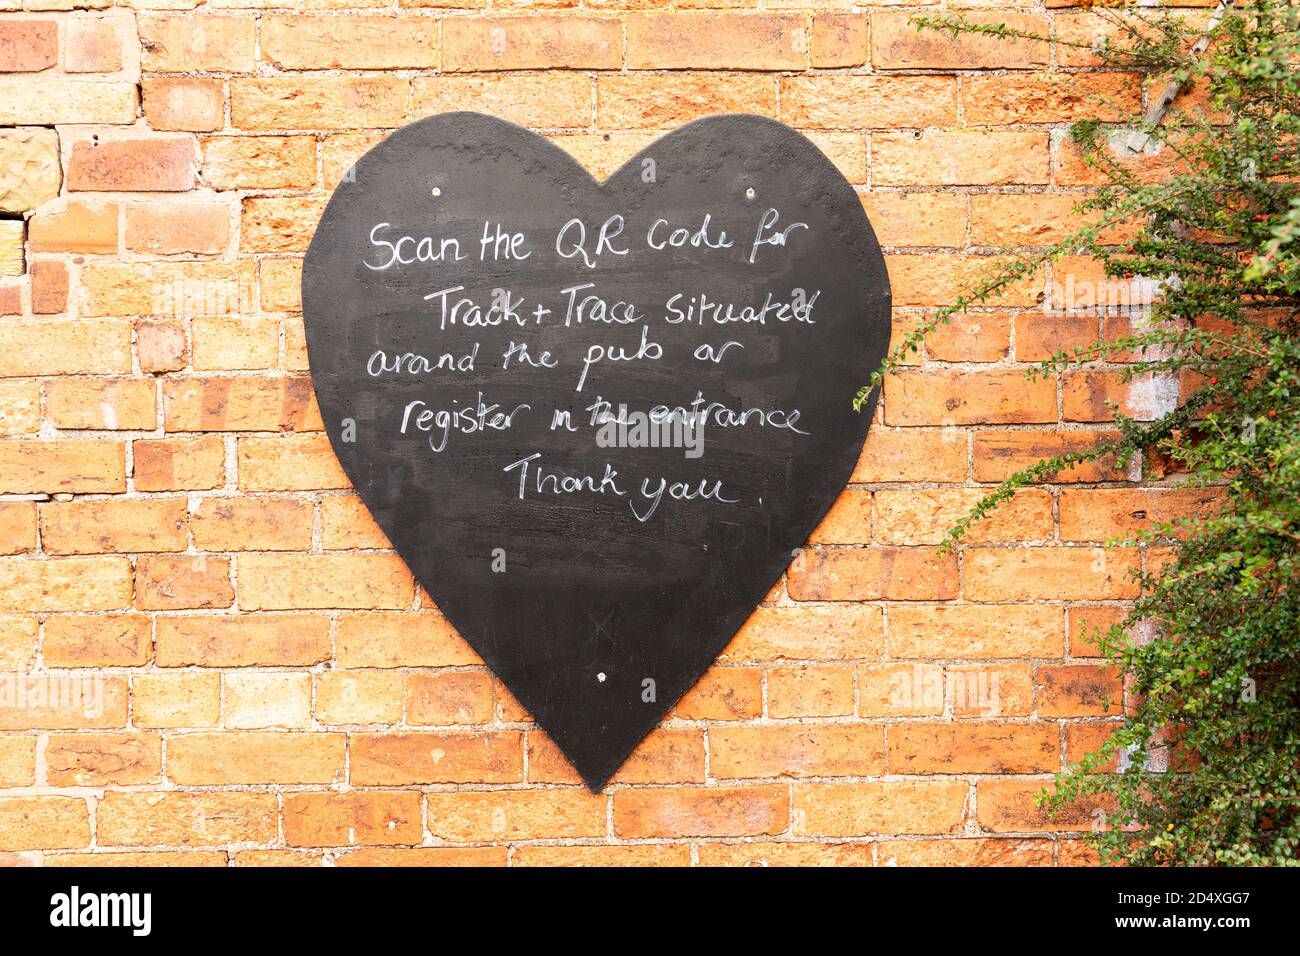 Scan the QR Code for
Track + Trace situated
around the pub or
register in the entrance
Thank you.
alamy
Image ID: 2D4XGG7
www.alamy.com